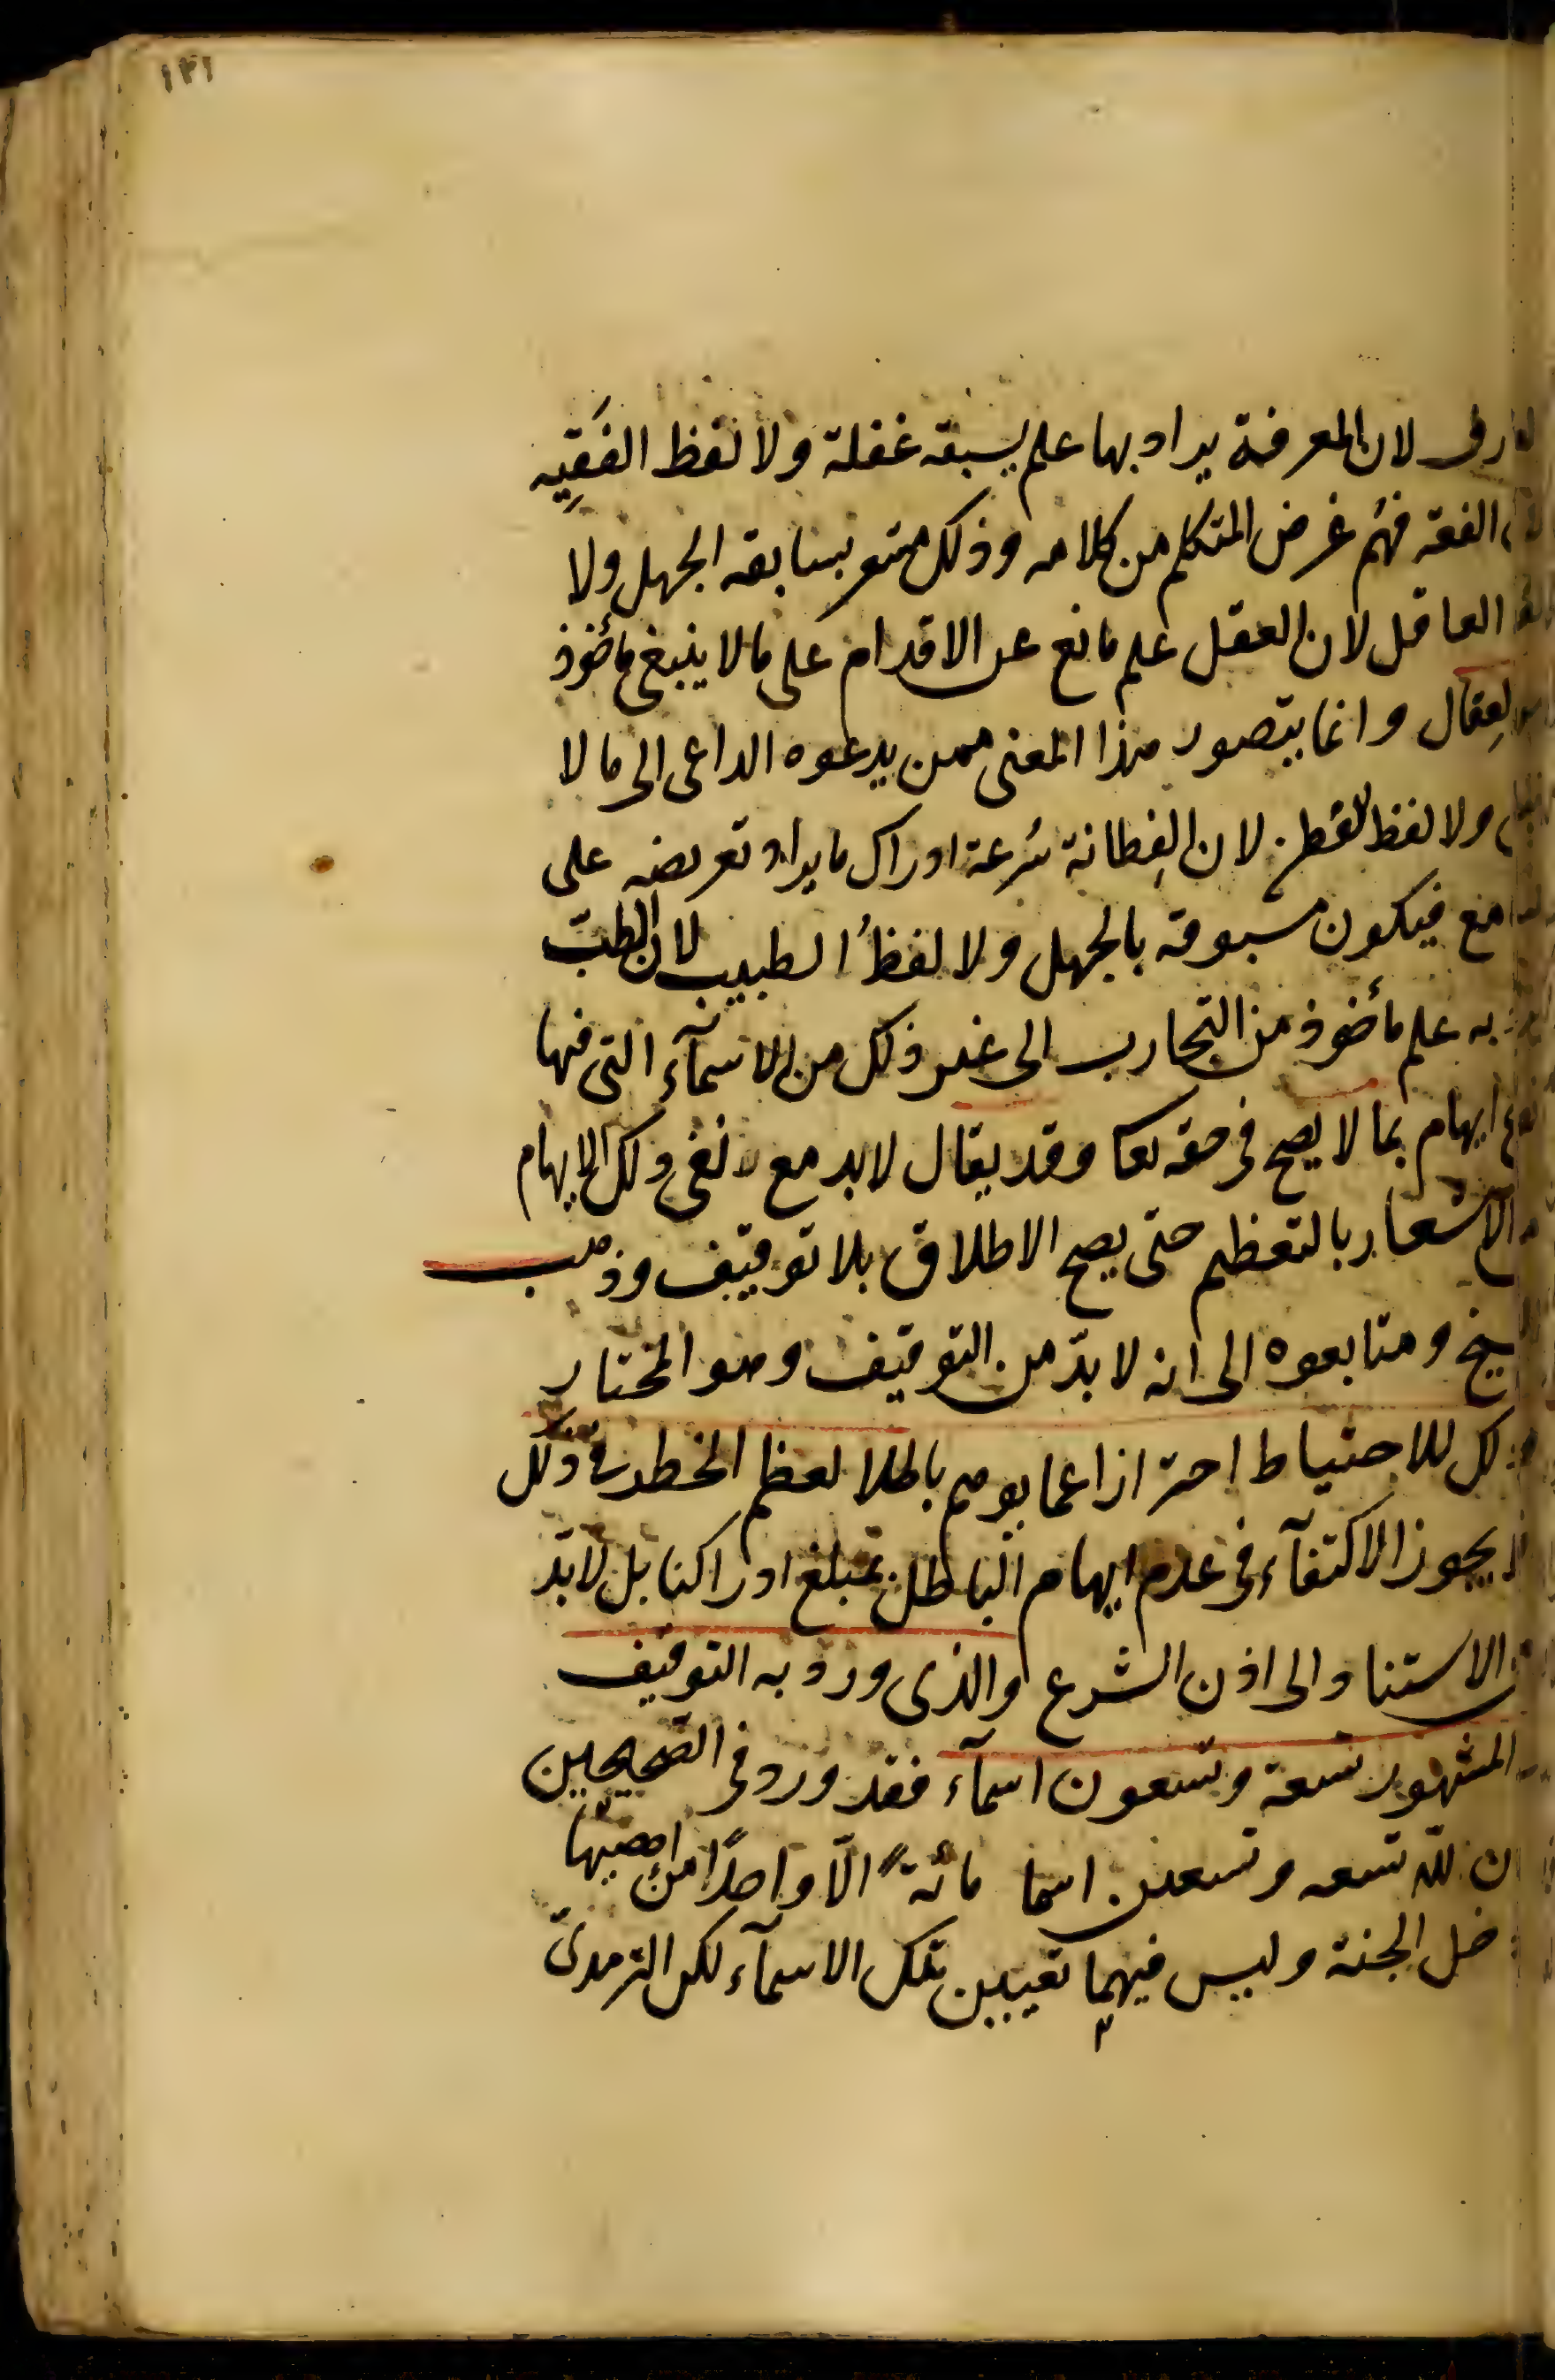 ١٢١
لعارف لان المعرفة يراد بها علم يسبقه غفلة ولا لفظ الفَقِيه
الفقه فهُم غرض المتكلم من كلامه وذلك مشعر بسابقة الجهل ولا
العاقل لان العقل علم مانع عن الاقدام على ما لا ينبغى مأخوذ
لعِقال وانما يتصور هذا المعنى ممن يدعوه الداعى الى ما لا
ولا لفظ الفطن لان الفِطانة سُرعة ادراك ما يراد تعريضه على
امع فيكون مسبوقة بالجهل ولا لفظُ الطبيب لان الطبّ
به علم مأخوذ من التجارب الى غير ذلك من الاسمآء التى فيها
ايهام بما لا يصح فى حقه تعا وقد يقال لابد مع نفى ذلك الايهام
الاشعار بالتعظيم حتى يصح الاطلاق بلا توقيف وذهب
يخ ومتابعوه الى انه لا بدّ من التوقيف وهو المختار
لك للاحتياط احترازا عما يوهم باطلا لعظم الخطر فى ذلك
يجوز الاكتفآء فى عدم ايهام الباطل بمبلغ ادراكنا بل لا بدّ
الاستناد الى اذن الشرع والذى ورد به التوقيف
المشهور تسعة وتسعون اسمآء فقد ورد فى الصحيحين
ان للّه تسعه وتسعين اسما مائةً الّا واحدًا من احصيها
خل الجنة وليس فيهما تعيين تلك الاسمآء لكن الترمذىّ